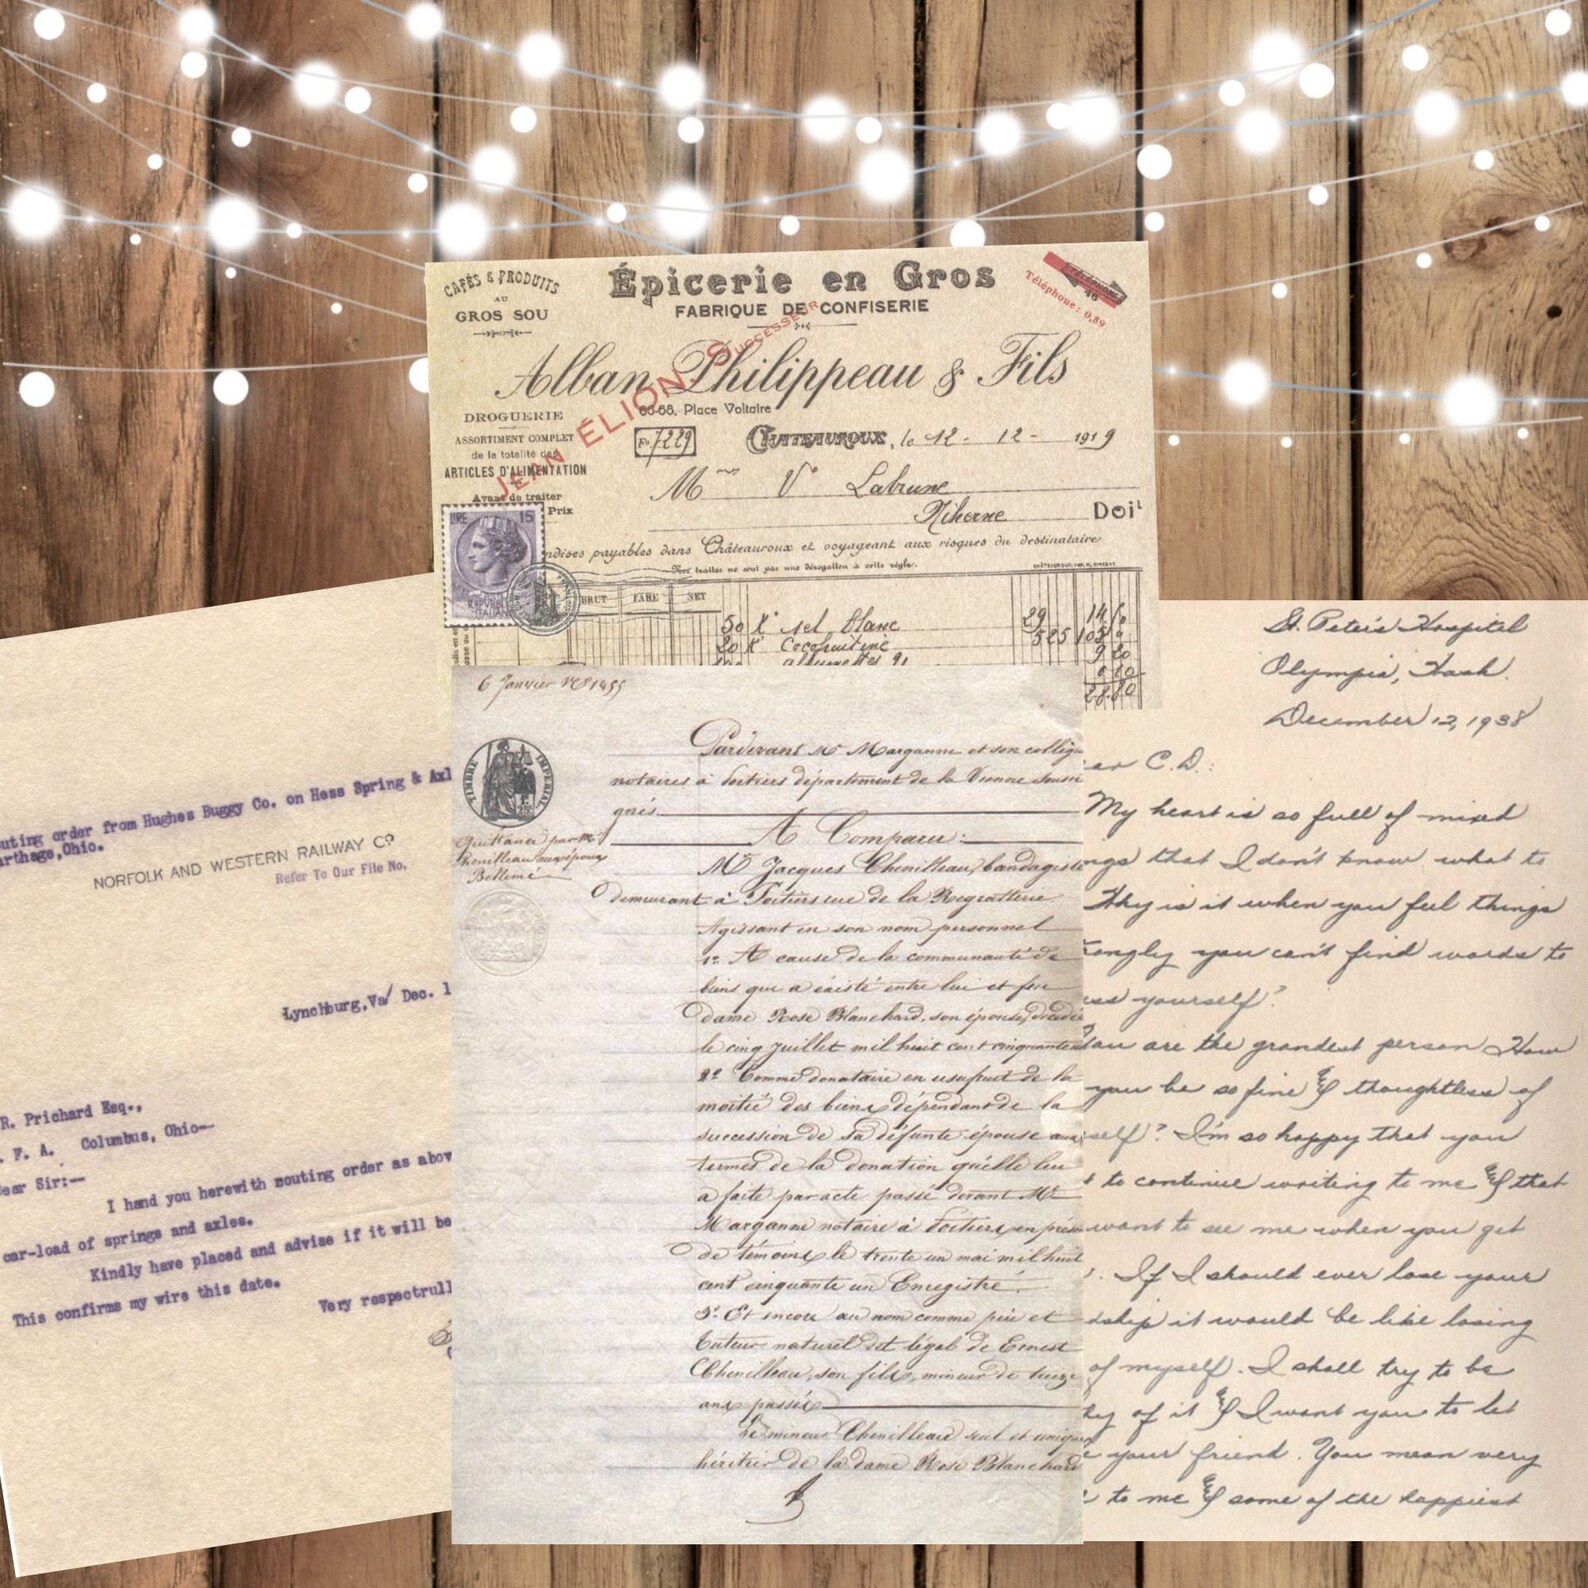 CAFÉS & PRODUITS
AU
GROS SOU
Épicerie en Gros
FABRIQUE DE CONFISERIE
Téléphone: 0,89
SUCCESSEUR
Alban Philippeau & Fils
66-68, Place Voltaire
JEAN ÉLION
DROGUERIE
ASSORTIMENT COMPLET
de la totalité des
ARTICLES D'ALIMENTATION
Avant de traiter
Prix
Fo 7229
CHATEAUROUX, le 12 - 12 - 1919
Mme Ve Labrune
Niherne
Doit
ndises payables dans Châteauroux et voyageant aux risques du destinataire
Nos traites ne sont pas une dérogation à cette règle.
LIRE 15
ITALIANA
BRUT TARE NET
50 K sel blanc 29 14
20 K 525 105
6 Janvier 1855
TIMBRE IMPERIAL
Pardevant Me Marganne et son collègu
notaires à Poitiers département de la Vienne soussi
gnés.
A Comparu:
Quittance par Mr
Bellemé
Mr Jacques Chenilleau, bandagiste
demeurant à Poitiers rue de la Regratterie
Agissant en son nom personnel
1o A cause de la communauté de
biens qui a existé entre lui et feu
dame Rose Blanchard, son épouse, décédée
le cinq juillet mil huit cent cinquante
2o Comme donataire en usufruit de la
moitié des biens dépendant de la
succession de sa défunte épouse aux
termes de la donation qu'elle lui
a faite par acte passé devant Me
Marganne notaire à Poitiers en prése
de témoins le trente un mai mil huit
cent cinquante un Enregistré.
3o Et encore au nom comme père et
tuteur naturel et légal de Ernest
Chenilleau, son fils, mineur de
ans passés
Le mineur Chenilleau seul et unique
héritier de la dame Rose Blanchard
outing order from Hughes Buggy Co. on Hess Spring & Axl
arthage, Ohio.
NORFOLK AND WESTERN RAILWAY CO
Refer To Our File No.
Lynchburg, Va/ Dec. 1
R. Prichard Esq.,
. F. A. Columbus, Ohio--
ear Sir:--
I hand you herewith routing order as abov
car-load of springs and axles.
Kindly have placed and advise if it will be
This confirms my wire this date.
Very respectrull
St. Peter's Hospital
Olympia, Wash.
December 12, 1938
ear C.D.:
My heart is so full of mixed
ngs that I don't know what to
Why is it when you feel things
rongly you can't find words to
ess yourself?
You are the grandest person How
you be so fine & thoughtless of
self? I'm so happy that you
t to continue writing to me & that
want to see me when you get
. If I should ever lose your
dship it would be like losing
of myself. I shall try to be
hy of it & I want you to let
e your friend. You mean very
to me & some of the happiest